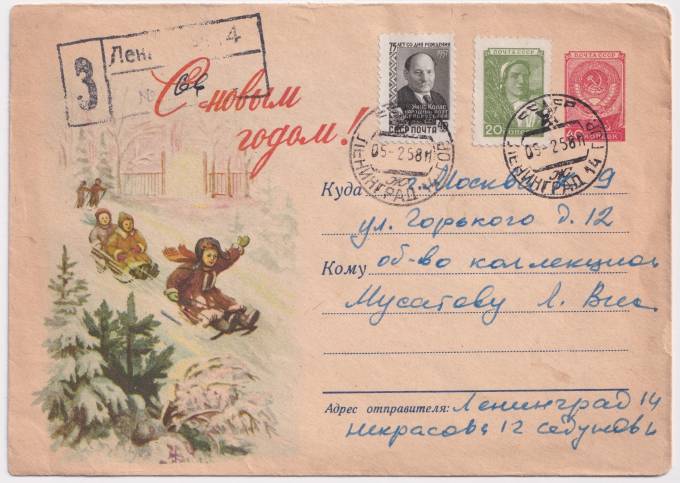 З
Лен
№
С новым
годом!
75 ЛЕТ СО ДНЯ РОЖДЕНИЯ
1957
ЯКУБ КОЛАС
НАРОДНЫЙ ПОЭТ
БЕЛОРУССИИ
СССР ПОЧТА
ПОЧТА СССР
20 КОПЕЕК
ПОЧТА СССР
40 КОПЕЕК
СССР
05-2 58 11
ЛЕНИНГРАД
СССР
05-2 58 11
ЛЕНИНГРАД 14
Куда г. Москва 9
ул. Горького д. 12
Кому об-во коллекцион
Мусатову Л.
Адрес отправителя: Ленинград 14
Некрасова 12